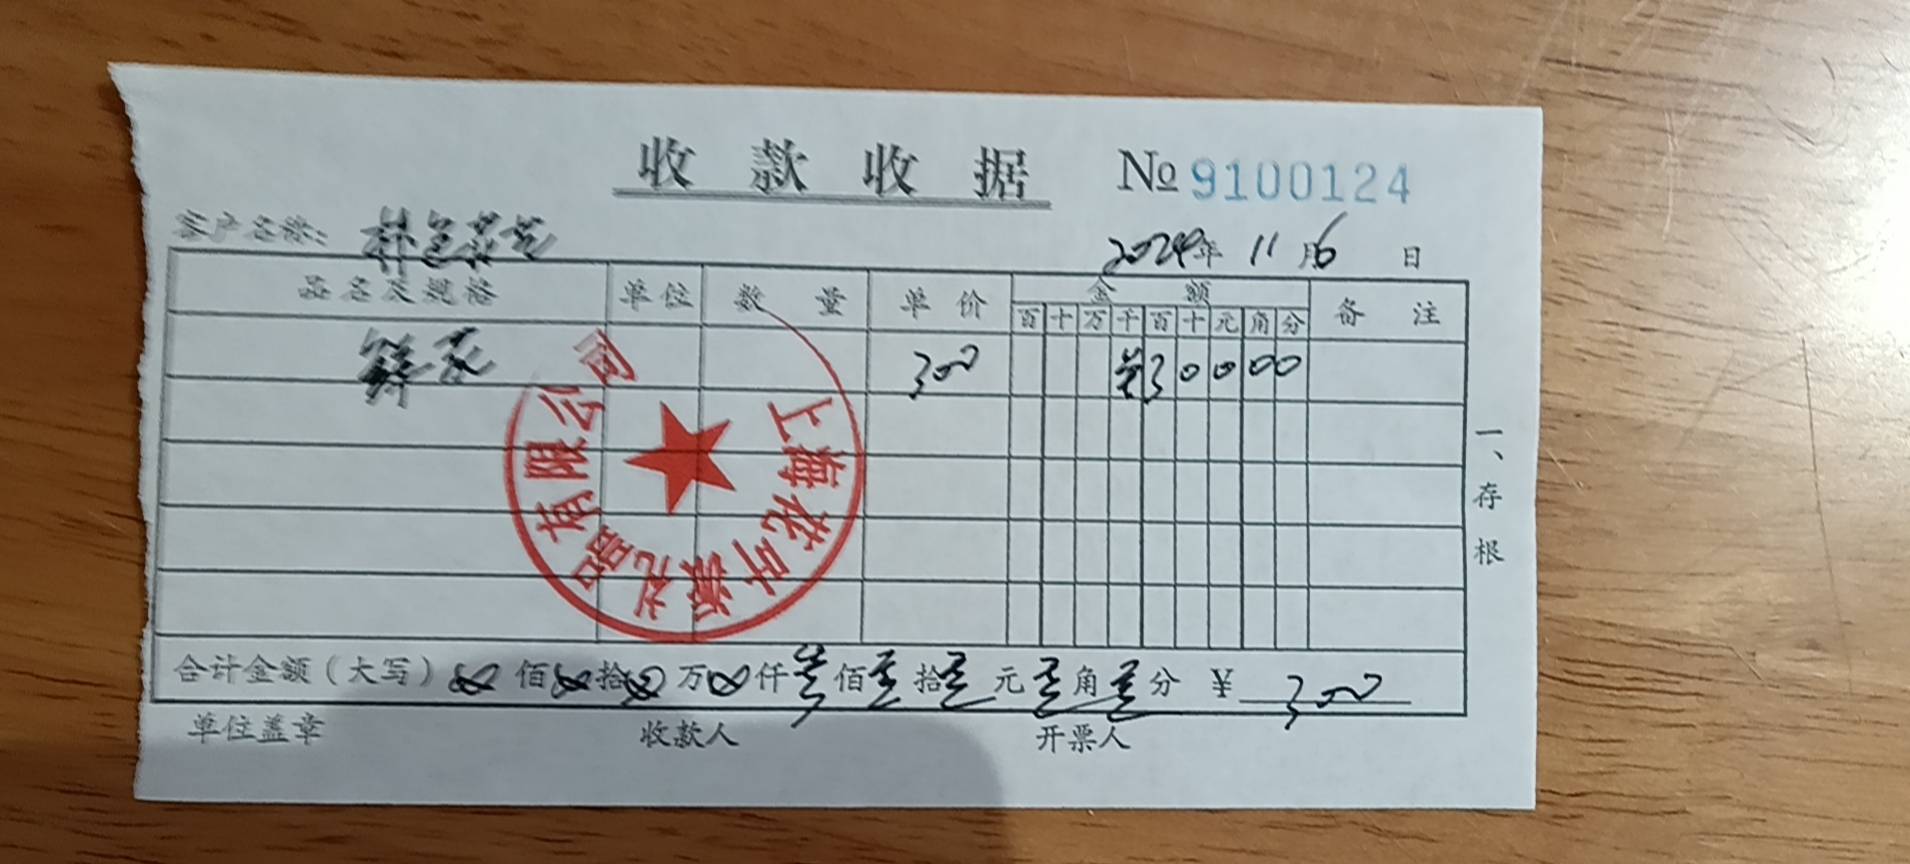 收款收据 № 9100124
客户名称:
2024年 11月6日
品名及规格 单位 数量 单价 金额 备注
百 十 万 千 百 十 元 角 分
鲜花 300 ¥30000
上海花平淑礼品有限公司
一、存根
合计金额(大写) ⊗佰⊗拾⊗万⊗仟叁佰零拾零元零角零分 ¥ 300
单位盖章 收款人 开票人